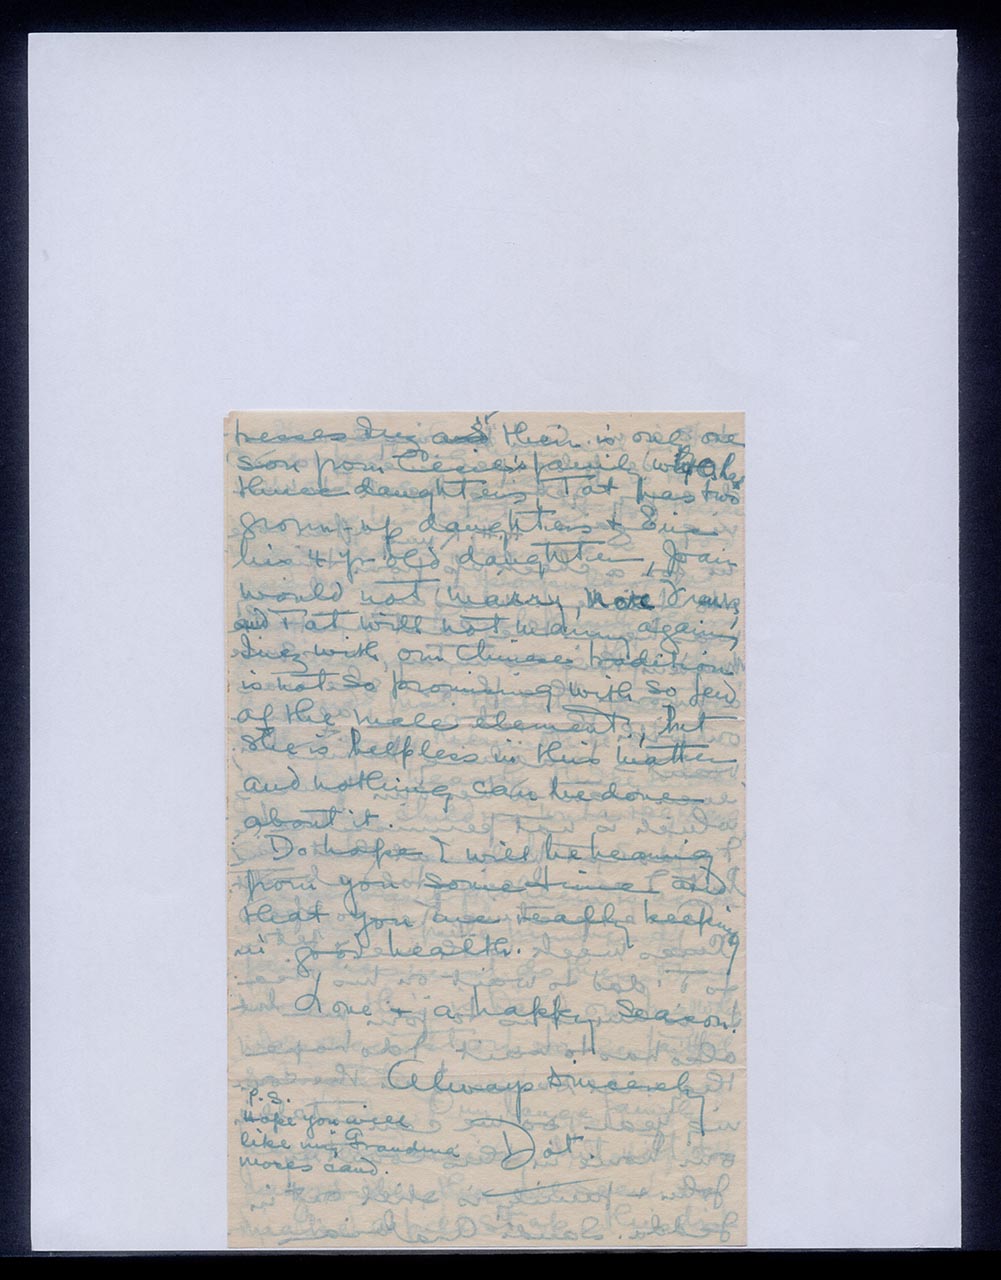 them is only one
son from Cecie's family who has
three daughters, Tat has two
grown-up daughters &
his 4 yr old daughter, Joan
would not marry, nore Frank
and Tat will not marry again,
with our Chinese tradition
is not so promising with so few
of the male elements, but
she is helpless in this matter
and nothing can be done
about it.
Do hope I will be hearing
from you some time and
that you are really keeping
in good health.
Love & a happy Season.
Always sincerely
Dot.
P.S.
Hope you will
like my Grandma
moses card.